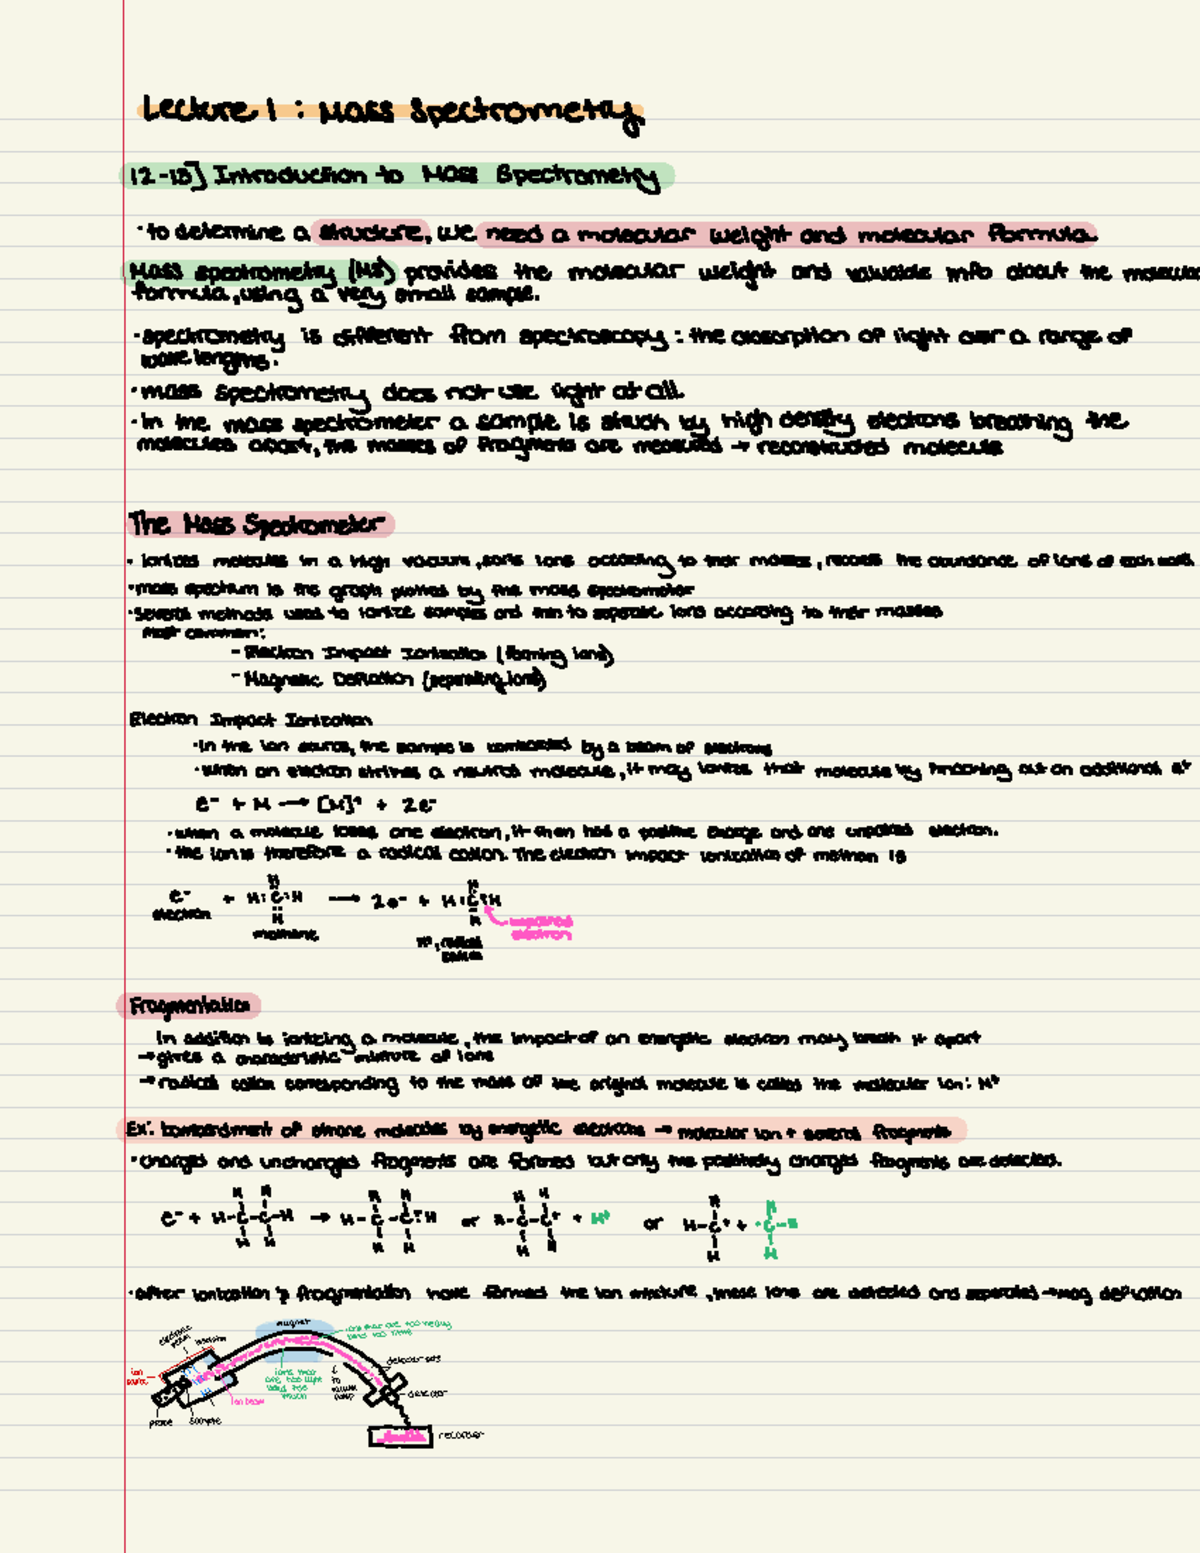 Lecture 1 : Mass Spectrometry
12-13] Introduction to Mass Spectrometry
· to determine a structure, we need a molecular weight and molecular formula
Mass spectrometry (MS) provides the molecular weight and valuable info about the molecular
formula, using a very small sample.
· spectrometry is different from spectroscopy : the absorption of light over a range of
wavelengths.
· mass spectrometry does not use light at all.
· In the mass spectrometer a sample is struck by high density electrons breathing the
molecules apart, the masses of fragments are measured → reconstructed molecule
The Mass Spectrometer
· Ionizes molecules in a high vacuum, sorts ions according to their masses, records the abundance of ions of each mass
· mass spectrum is the graph plotted by the mass spectrometer
· several methods used to ionize samples and then to separate ions according to their masses
most common:
- Electron Impact Ionization (forming ions)
- Magnetic Deflection (separating ions)
Electron Impact Ionization
· In the ion source, the sample is bombarded by a beam of electrons
· when an electron strikes a neutral molecule, it may ionize that molecule by knocking out an additional e⁻
e⁻ + M → [M]⁺ + 2e⁻
· when a molecule loses one electron, it then has a positive charge and one unpaired electron.
· the ion is therefore a radical cation. The electron impact ionization of methan is
H H
e⁻ + H:C:H → 2e⁻ + H:C:H
electron H H unpaired
methane electron
M⁺, radical
cation
Fragmentation
In addition to ionizing a molecule, the impact of an energetic electron may break it apart
→ gives a characteristic mixture of ions
→ radical cation corresponding to the mass of the original molecule is called the molecular ion: M⁺
Ex: bombardment of ethane molecules by energetic electrons → molecular ion + several fragments
· charged and uncharged fragments are formed but only the positively charged fragments are detected.
H H H H H H H H
e⁻ + H-C-C-H → H-C-C:H or H-C-C⁺ + H• or H-C⁺ + •C-H
H H H H H H H H
· after ionization & fragmentation have formed the ion mixture, these ions are detected and separated → mag deflection
magnet
ions that are too heavy
bend too little
electron
beam
ion
source
ions that
are too light
bend too
much
to
vacuum
pump
detector slits
detector
ion beam
probe sample
recorder